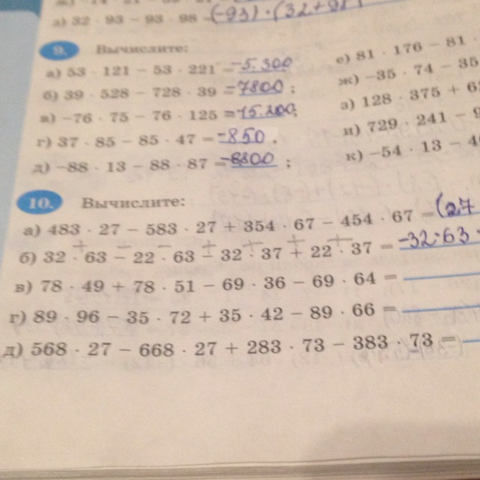 а) 32 · 93 – 93 · 98 = (-93) · (32+98)
9. Вычислите:
а) 53 · 121 – 53 · 221 = -5.300
б) 39 · 528 – 728 · 39 = -7800;
в) –76 · 75 – 76 · 125 = -15.200;
г) 37 · 85 – 85 · 47 = -850.
д) –88 · 13 – 88 · 87 = -8800;
е) 81 · 176 – 81 ·
ж) –35 · 74 – 35
з) 128 · 375 + 62
и) 729 · 241 – 9
к) –54 · 13 – 4
10. Вычислите:
а) 483 · 27 – 583 · 27 + 354 · 67 – 454 · 67 = (27
б) 32 · 63 – 22 · 63 – 32 · 37 + 22 · 37 = -32·63
в) 78 · 49 + 78 · 51 – 69 · 36 – 69 · 64 =
г) 89 · 96 – 35 · 72 + 35 · 42 – 89 · 66 =
д) 568 · 27 – 668 · 27 + 283 · 73 – 383 · 73 =